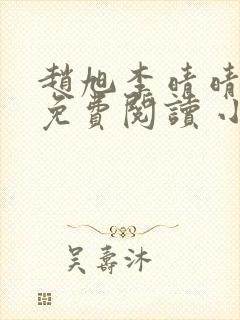 趙旭李晴晴
免費閱讀小
吴壽沐